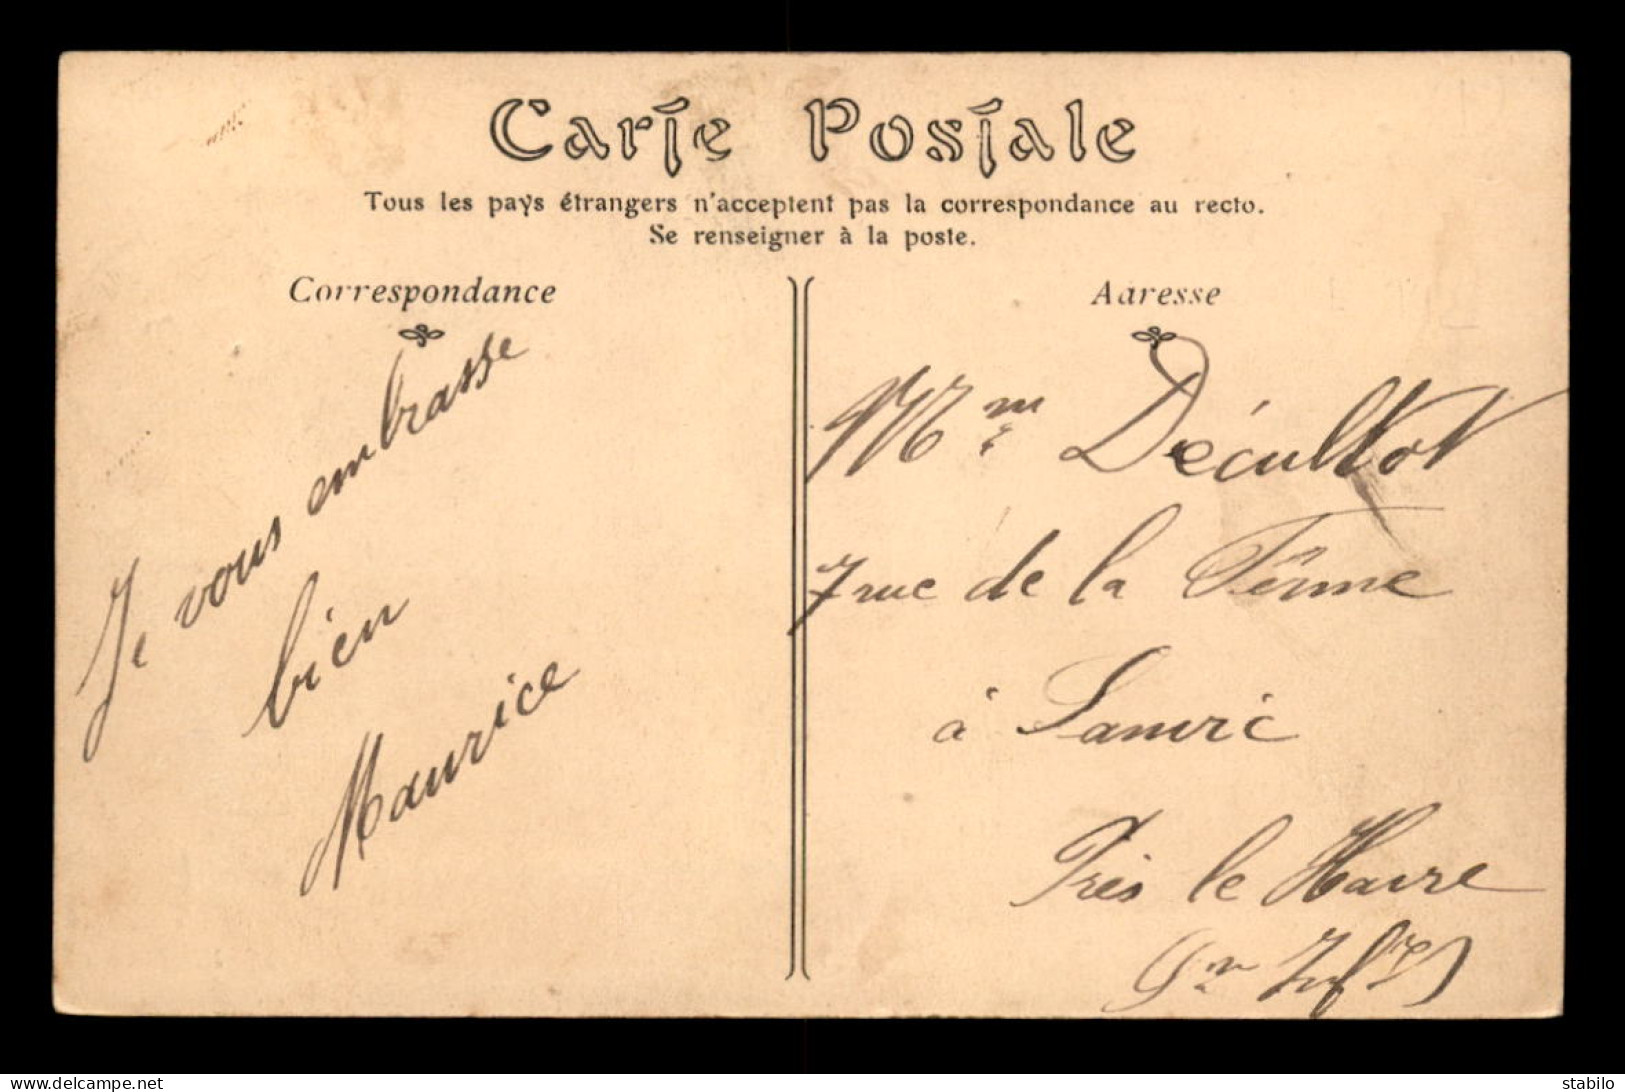 Carte Postale
Tous les pays étrangers n'acceptent pas la correspondance au recto.
Se renseigner à la poste.
Correspondance
Je vous embrasse
bien
Maurice
Adresse
Mme Décultot
7 rue de la Ferme
à Sanvic
Près le Havre
Sne Infre
www.delcampe.net
stabilo